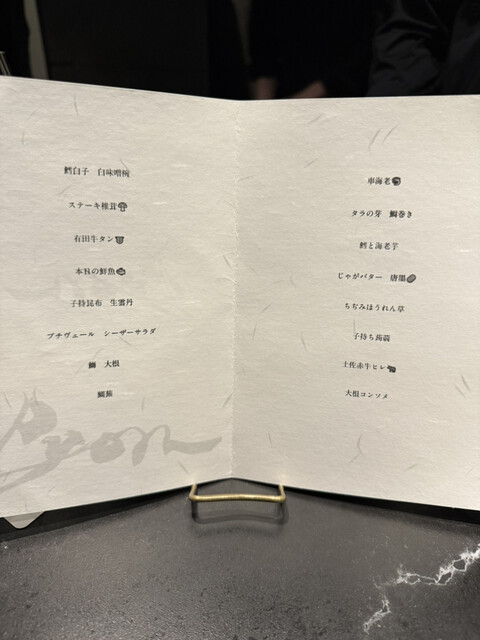 鱈白子　白味噌椀
ステーキ椎茸
有田牛タン
本日の鮮魚
子持昆布　生雲丹
プチヴェール　シーザーサラダ
鰤　大根
車海老
タラの芽　鯛巻き
鱈と海老芋
じゃがバター　唐墨
ちぢみほうれん草
子持ち蒟蒻
土佐赤牛ヒレ
大根コンソメ